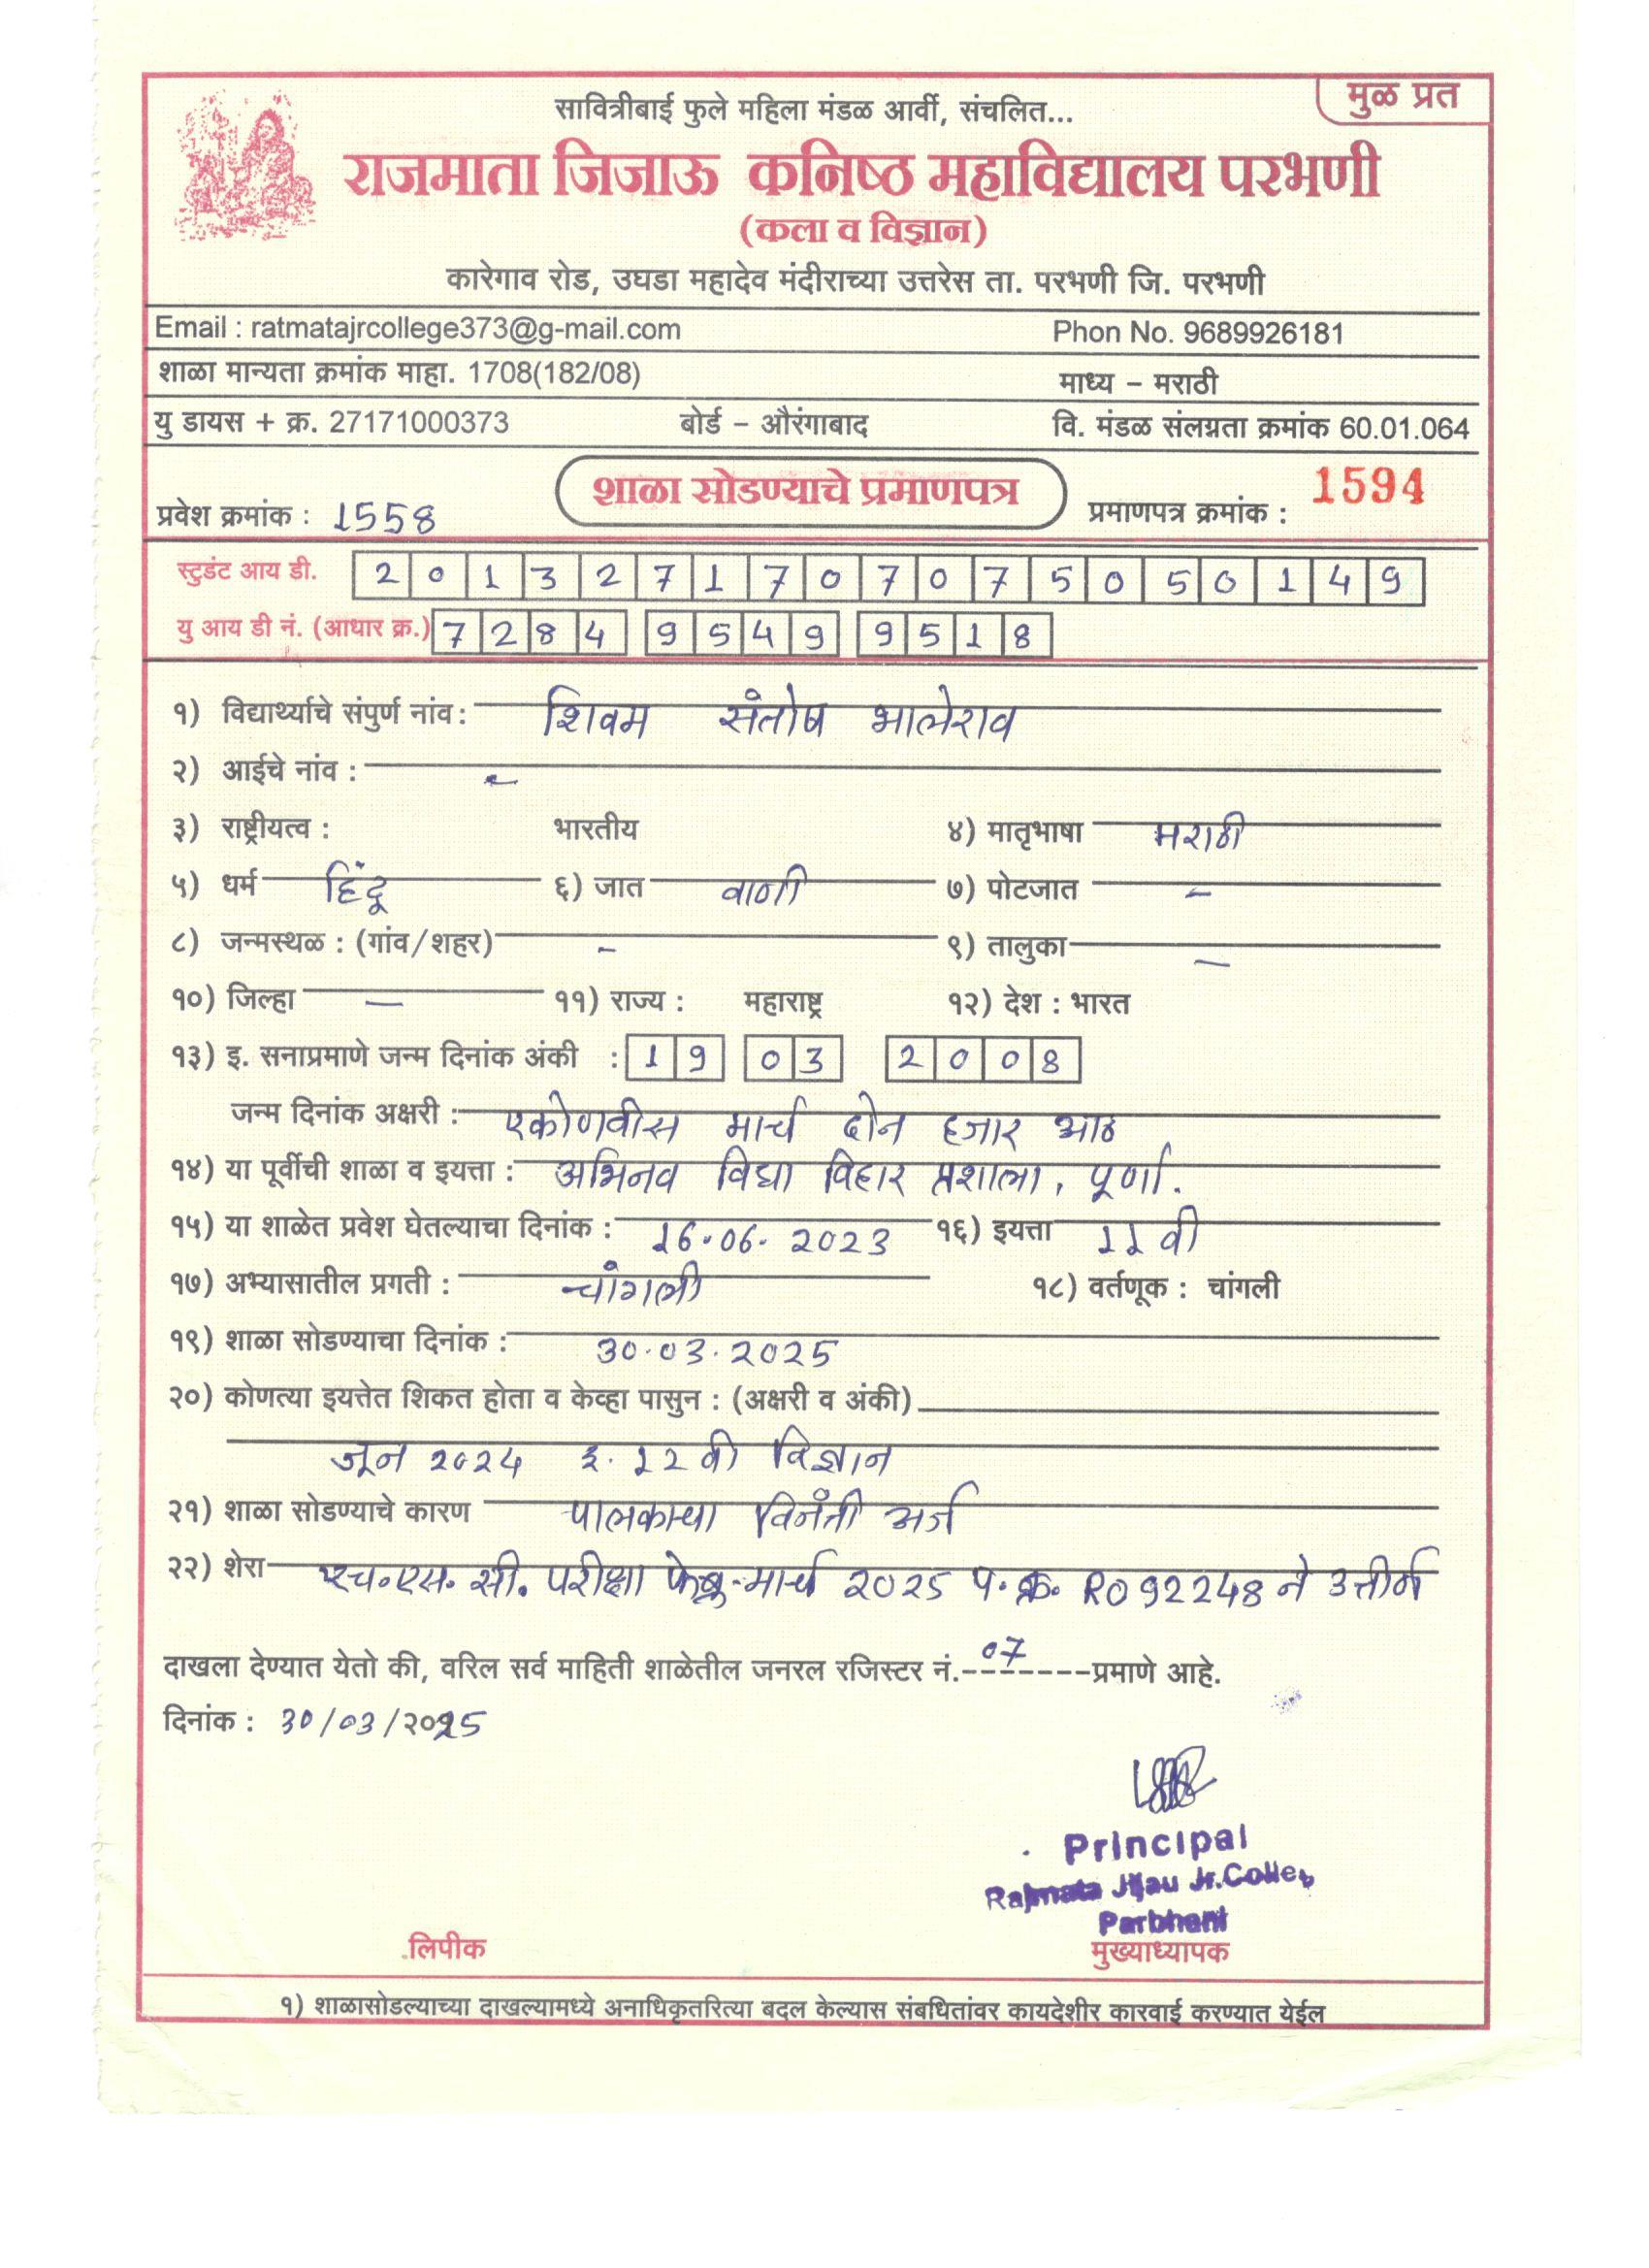 मुळ प्रत
सावित्रीबाई फुले महिला मंडळ आर्वी, संचलित...
राजमाता जिजाऊ कनिष्ठ महाविद्यालय परभणी
(कला व विज्ञान)
कारेगाव रोड, उघडा महादेव मंदीराच्या उत्तरेस ता. परभणी जि. परभणी
Email : ratmatajrcollege373@g-mail.com Phon No. 9689926181
शाळा मान्यता क्रमांक माहा. 1708(182/08) माध्य – मराठी
यु डायस + क्र. 27171000373 बोर्ड – औरंगाबाद वि. मंडळ संलग्नता क्रमांक 60.01.064
प्रवेश क्रमांक : 1558 शाळा सोडण्याचे प्रमाणपत्र प्रमाणपत्र क्रमांक : 1594
स्टुडंट आय डी. 2013271707075050149
यु आय डी नं. (आधार क्र.) 7284 9549 9518
१) विद्यार्थ्याचे संपुर्ण नांव : शिवम संतोष भालेराव
२) आईचे नांव : -
३) राष्ट्रीयत्व : भारतीय ४) मातृभाषा मराठी
५) धर्म हिंदू ६) जात वाणी ७) पोटजात -
८) जन्मस्थळ : (गांव/शहर) - ९) तालुका -
१०) जिल्हा - ११) राज्य : महाराष्ट्र १२) देश : भारत
१३) इ. सनाप्रमाणे जन्म दिनांक अंकी : 19 03 2008
जन्म दिनांक अक्षरी : एकोणवीस मार्च दोन हजार आठ
१४) या पूर्वीची शाळा व इयत्ता : अभिनव विद्या विहार प्रशाला, पूर्णा.
१५) या शाळेत प्रवेश घेतल्याचा दिनांक : 16.06. 2023 १६) इयत्ता 11 वी
१७) अभ्यासातील प्रगती : चांगली १८) वर्तणूक : चांगली
१९) शाळा सोडण्याचा दिनांक : 30.03.2025
२०) कोणत्या इयत्तेत शिकत होता व केव्हा पासुन : (अक्षरी व अंकी)
जून 2024 इ. 12 वी विज्ञान
२१) शाळा सोडण्याचे कारण पालकाचा विनंती अर्ज
२२) शेरा एच.एस. सी. परीक्षा फेब्रु-मार्च 2025 प. क्र. R092248 ने उत्तीर्ण
दाखला देण्यात येतो की, वरिल सर्व माहिती शाळेतील जनरल रजिस्टर नं.--07-----प्रमाणे आहे.
दिनांक : 30/03/२०25
Principal
Rajmata Jijau Jr.Colleg
Parbhani
लिपीक मुख्याध्यापक
१) शाळासोडल्याच्या दाखल्यामध्ये अनाधिकृतरित्या बदल केल्यास संबधितांवर कायदेशीर कारवाई करण्यात येईल